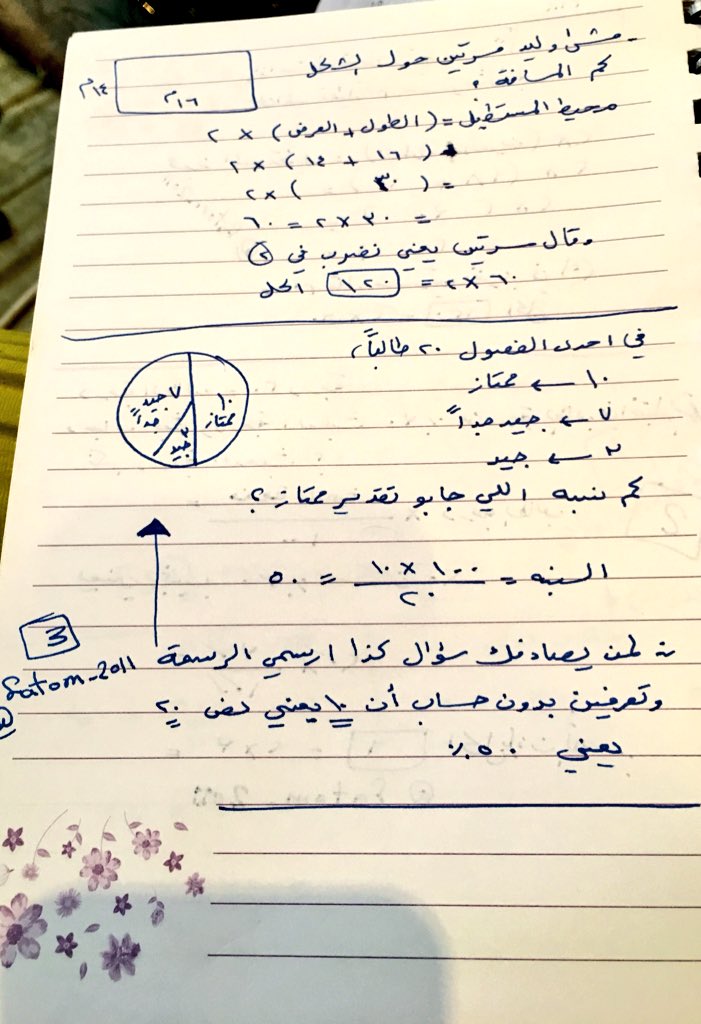 - مشى وليد مرتين حول بشكل
كم المسافة ؟
١٤م
١٦م
محيط المستطيل = (الطول + العرض) × ٢
(١٦ + ١٤) × ٢
= (٣٠) × ٢
= ٣٠ × ٢ = ٦٠
وقال مرتين يعني نضرب في ②
٦٠ × ٢ = ١٢٠ الحل
في احدى الفصول ٢٠ طالباً،
١٠ ← ممتاز
٧ ← جيد جداً
٣ ← جيد
١٠ ممتاز
٧ جيد جداً
٣ جيد
كم نسبه اللي جابو تقدير ممتاز ؟
النسبه = ١٠ × ١٠٠ / ٢٠ = ٥٠
3
fatom-2011
لمن يصادفك سؤال كذا ارسمي الرسمة
وتعرفين بدون حساب أن ١٠ يعني نص ٢٠
يعني ٥٠٪